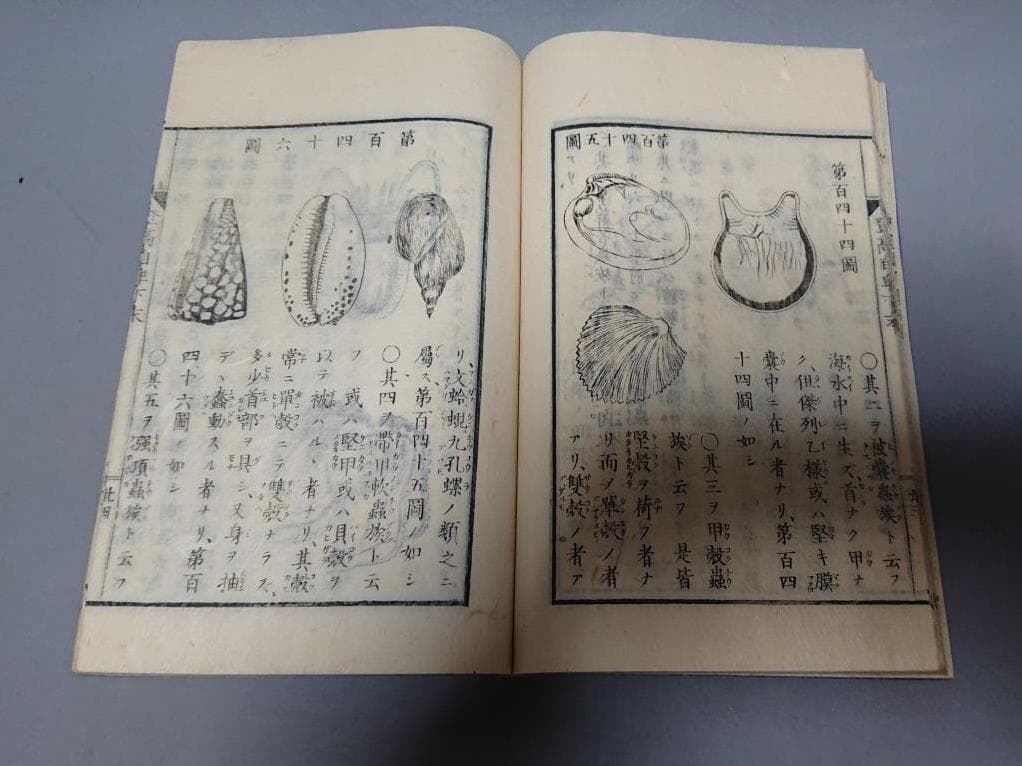 第百四十四圖
第百四十五圖
○其二ヲ被囊蟲族ト云フ
海水中ニ生ズ首ナク甲ナ
ク、但傑列乙樣或ハ堅キ膜
囊中ニ在ル者ナリ、第百四
十四圖ノ如シ
○其三ヲ甲殻蟲
族ト云フ 是皆
堅殻ヲ荷フ者ナ
リ而ヲ單殻ノ者
アリ、雙殻ノ者ア
廿三
第百四十六圖
リ、文蛤蜆九孔螺ノ類之ニ
屬ス第百四十五圖ノ如シ
○其四ヲ帶甲軟蟲族ト云
フ 或ハ堅甲或ハ貝殻ヲ
以テ被ハル、者ナリ、其殻
常ニ單殻ニテ雙殻ナラズ、
多少首部ヲ具シ、又身ヲ抽
デ、蠢動スル者ナリ、第百
四十六圖ノ如シ
○其五ヲ强項蟲族ト云フ
廿四